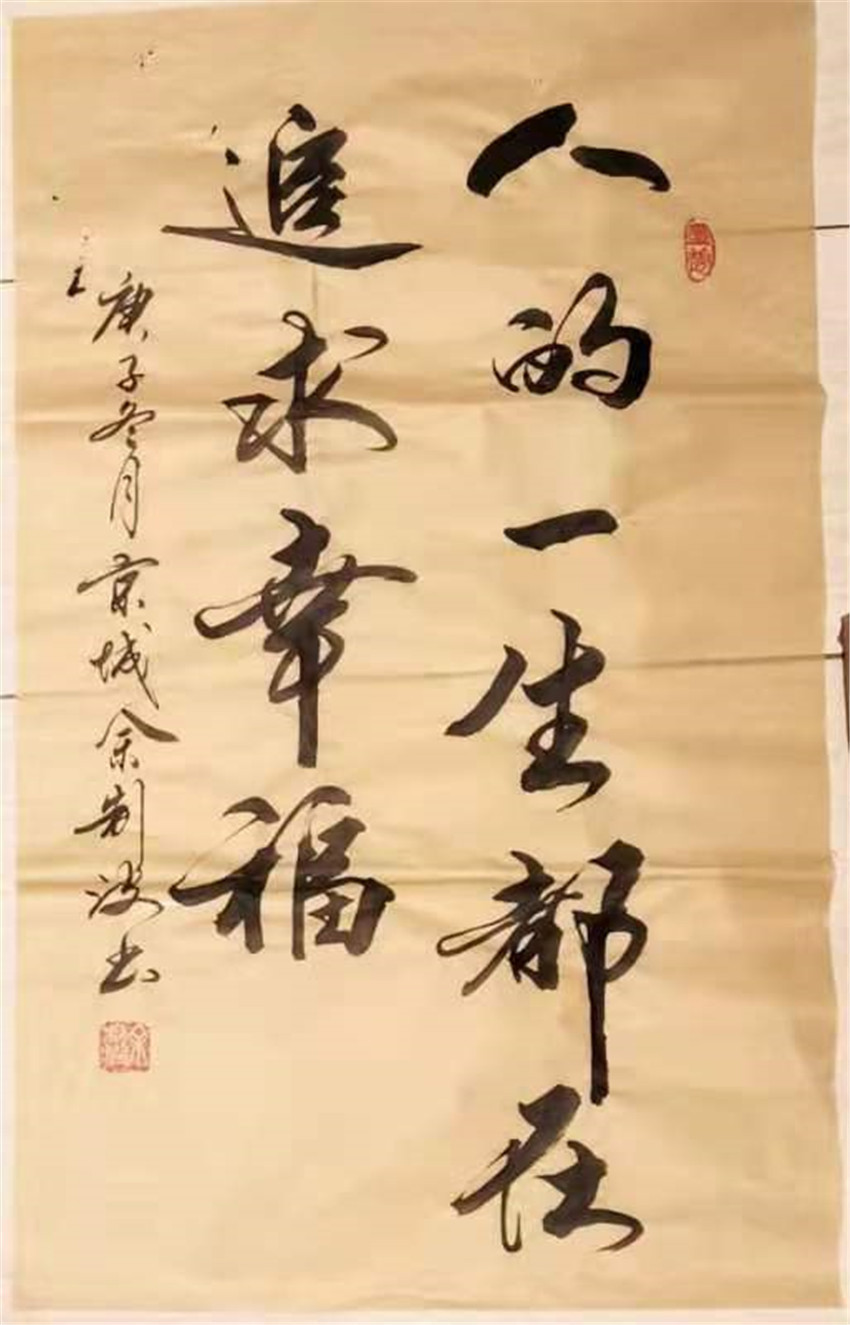 人的一生都在
追求幸福
庚子冬月京城余制波书